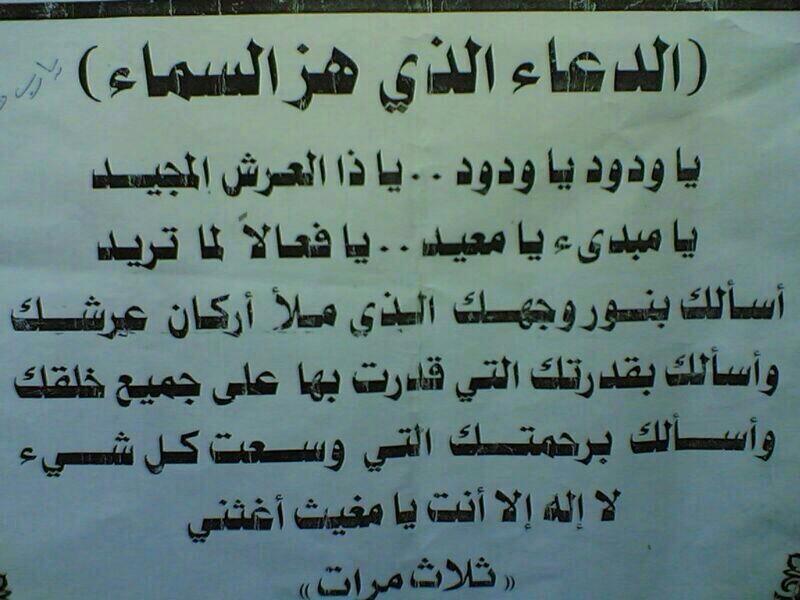 (الدعاء الذي هز السماء)
يا ودود يا ودود .. يا ذا العرش المجيد
يا مبدىء يا معيد .. يا فعالاً لما تريد
أسألك بنور وجهك الذي ملأ أركان عرشك
وأسألك بقدرتك التي قدرت بها على جميع خلقك
وأسألك برحمتك التي وسعت كل شيء
لا إله إلا أنت يا مغيث أغثني
«ثلاث مرات»